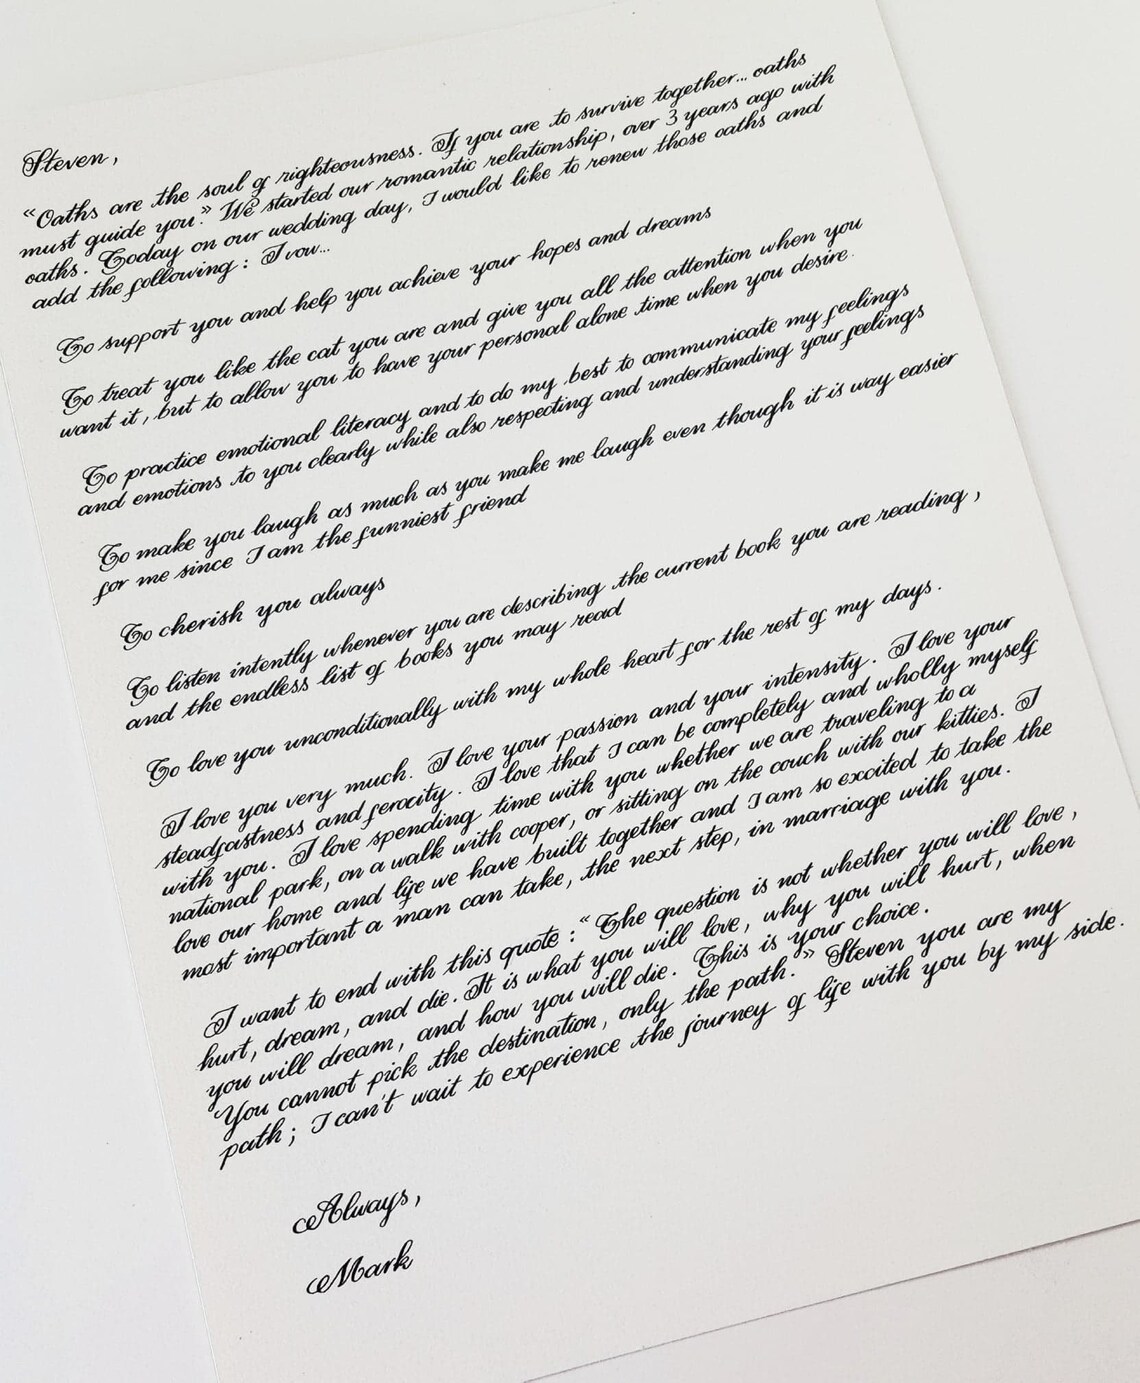 Steven,
"Oaths are the soul of righteousness. If you are to survive together... oaths
must guide you." We started our romantic relationship, over 3 years ago with
oaths. Today on our wedding day, I would like to renew those oaths and
add the following: I vow...
To support you and help you achieve your hopes and dreams
To treat you like the cat you are and give you all the attention when you
want it, but to allow you to have your personal alone time when you desire.
To practice emotional literacy and to do my best to communicate my feelings
and emotions to you clearly while also respecting and understanding your feelings
To make you laugh as much as you make me laugh even though it is way easier
for me since I am the funniest friend
To cherish you always
To listen intently whenever you are describing the current book you are reading,
and the endless list of books you may read
To love you unconditionally with my whole heart for the rest of my days.
I love you very much. I love your passion and your intensity. I love your
steadfastness and ferocity. I love that I can be completely and wholly myself
with you. I love spending time with you whether we are traveling to a
national park, on a walk with cooper, or sitting on the couch with our kitties. I
love our home and life we have built together and I am so excited to take the
most important a man can take, the next step, in marriage with you.
I want to end with this quote: "The question is not whether you will love,
hurt, dream, and die. It is what you will love, why you will hurt, when
you will dream, and how you will die. This is your choice.
You cannot pick the destination, only the path." Steven you are my
path; I can't wait to experience the journey of life with you by my side.
Always,
Mark